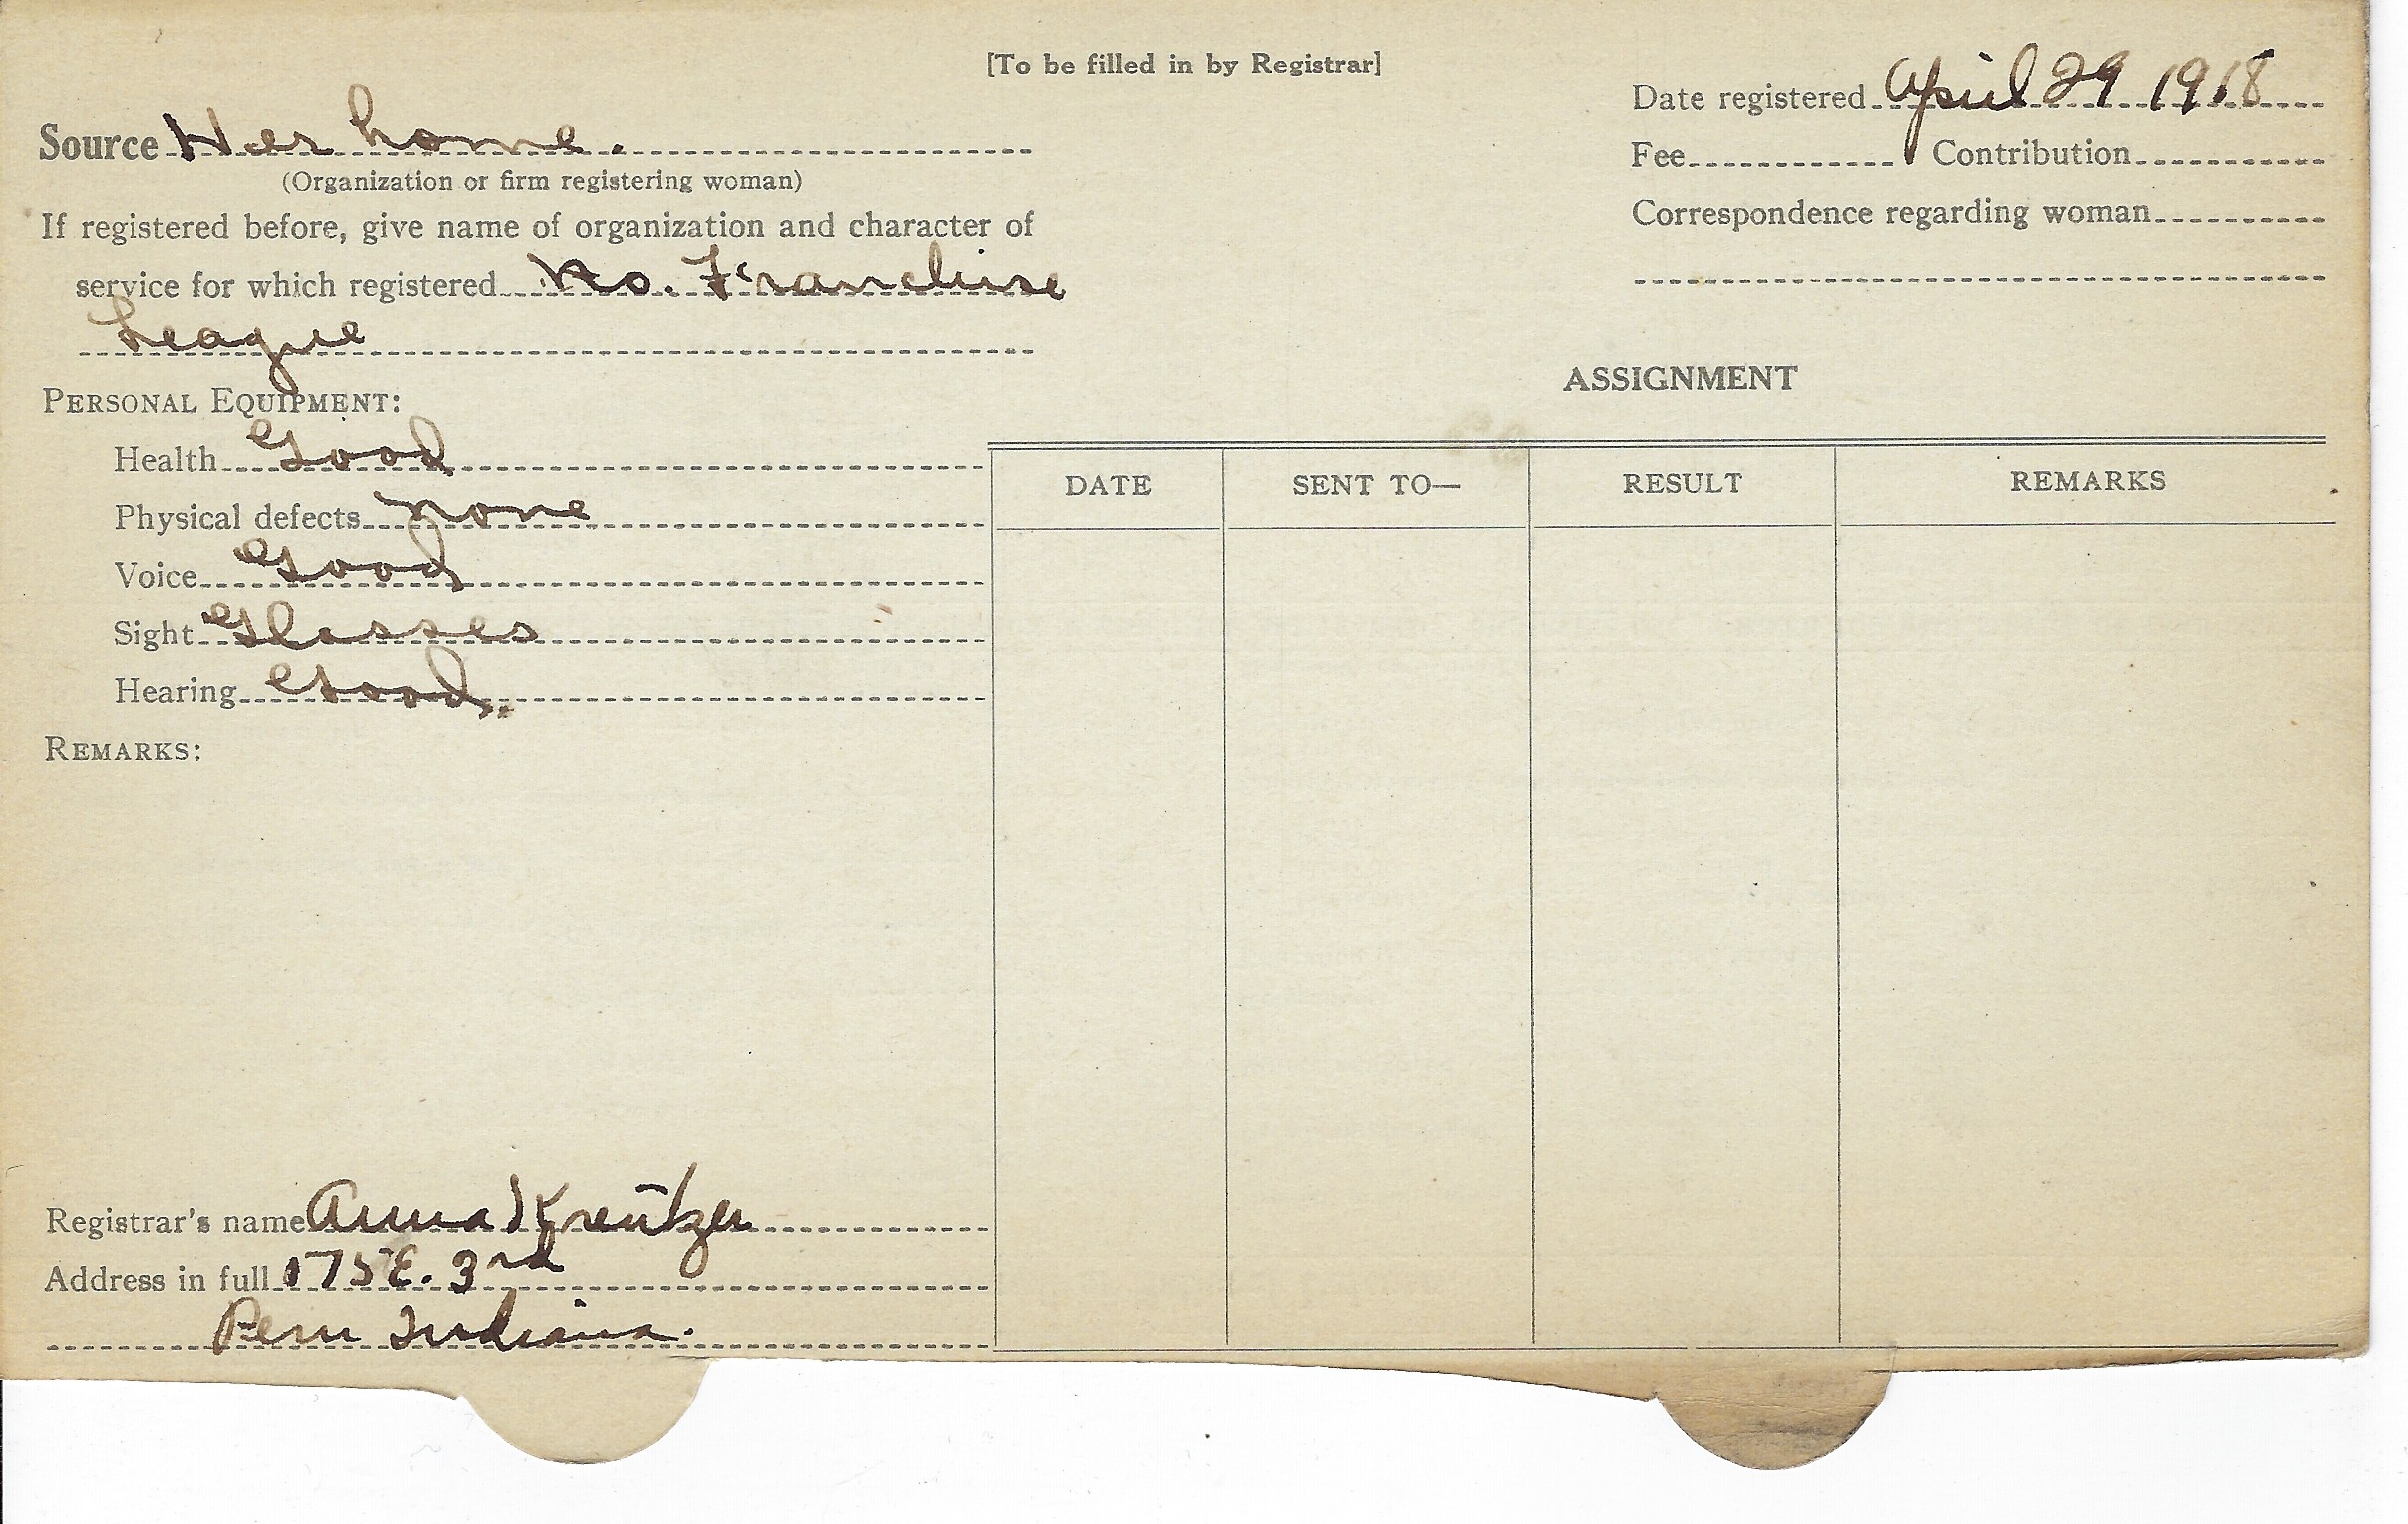 [To be filled in by Registrar]
Date registered April 29 1918
Source Her home.
(Organization or firm registering woman)
Fee Contribution
If registered before, give name of organization and character of
service for which registered No. Franchise
League
Correspondence regarding woman
PERSONAL EQUIPMENT:
Health Good
Physical defects none
Voice Good
Sight Glasses
Hearing Good.
REMARKS:
ASSIGNMENT
DATE SENT TO— RESULT REMARKS
Registrar's name Anna Kreutzer
Address in full 175 E. 3rd
Peru Indiana.